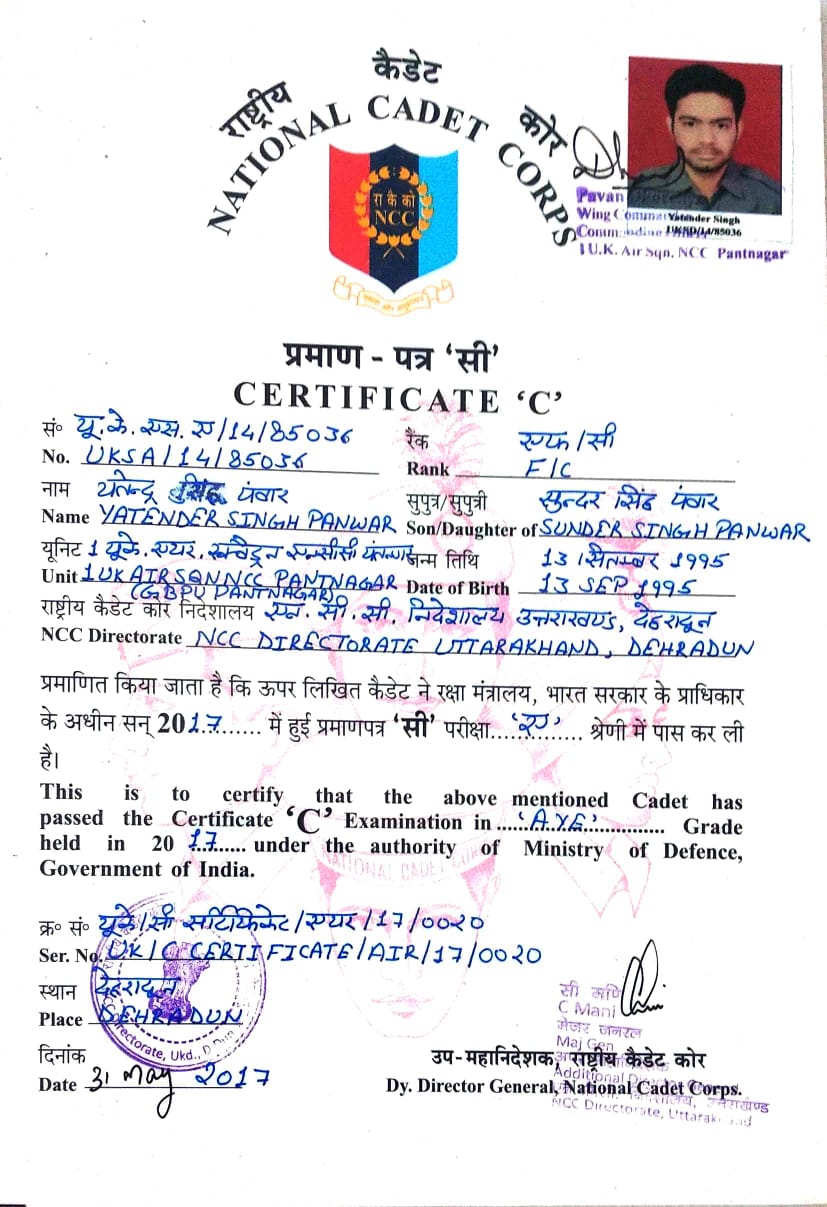 राष्ट्रीय कैडेट कोर
NATIONAL CADET CORPS
रा कै को
NCC
Pavan
Wing Comma
Yatender Singh
UKSD/14/85036
1 U.K. Air Sqn. NCC Pantnagar
प्रमाण - पत्र ‘सी’
CERTIFICATE ‘C’
सं० यू.के. एस. ए/14/85036 रैंक एफ/सी
No. UKSA/14/85036 Rank F/C
नाम यतेन्द्र सिंह पंवार सुपुत्र/सुपुत्री सुन्दर सिंह पंवार
Name YATENDER SINGH PANWAR Son/Daughter of SUNDER SINGH PANWAR
यूनिट 1 यू.के. एयर. स्क्वैड्रन एनसीसी पंतनगर जन्म तिथि 13 सितम्बर 1995
Unit 1 UK AIR SQN NCC PANTNAGAR Date of Birth 13 SEP 1995
(GBPU PANTNAGAR)
राष्ट्रीय कैडेट कोर निदेशालय एन. सी. सी. निदेशालय उत्तराखण्ड, देहरादून
NCC Directorate NCC DIRECTORATE UTTARAKHAND, DEHRADUN
प्रमाणित किया जाता है कि ऊपर लिखित कैडेट ने रक्षा मंत्रालय, भारत सरकार के प्राधिकार
के अधीन सन् 2017 में हुई प्रमाणपत्र ‘सी’ परीक्षा ‘ए’ श्रेणी में पास कर ली
है।
This is to certify that the above mentioned Cadet has
passed the Certificate ‘C’ Examination in ‘AYE’ Grade
held in 2017 under the authority of Ministry of Defence,
Government of India.
NATIONAL CADET CORPS
क्र० सं० यूके/सी सर्टिफिकेट/एयर/17/0020
Ser. No. UK/C CERTIFICATE/AIR/17/0020
स्थान देहरादून
Place DEHRADUN
Directorate, Ukd., D.Dun
दिनांक
Date 31 May 2017
सी मणि
C Mani
मेजर जनरल
Maj Gen
उप-महानिदेशक, राष्ट्रीय कैडेट कोर
Additional
Dy. Director General, National Cadet Corps.
उत्तराखण्ड
NCC Directorate, Uttarakhand